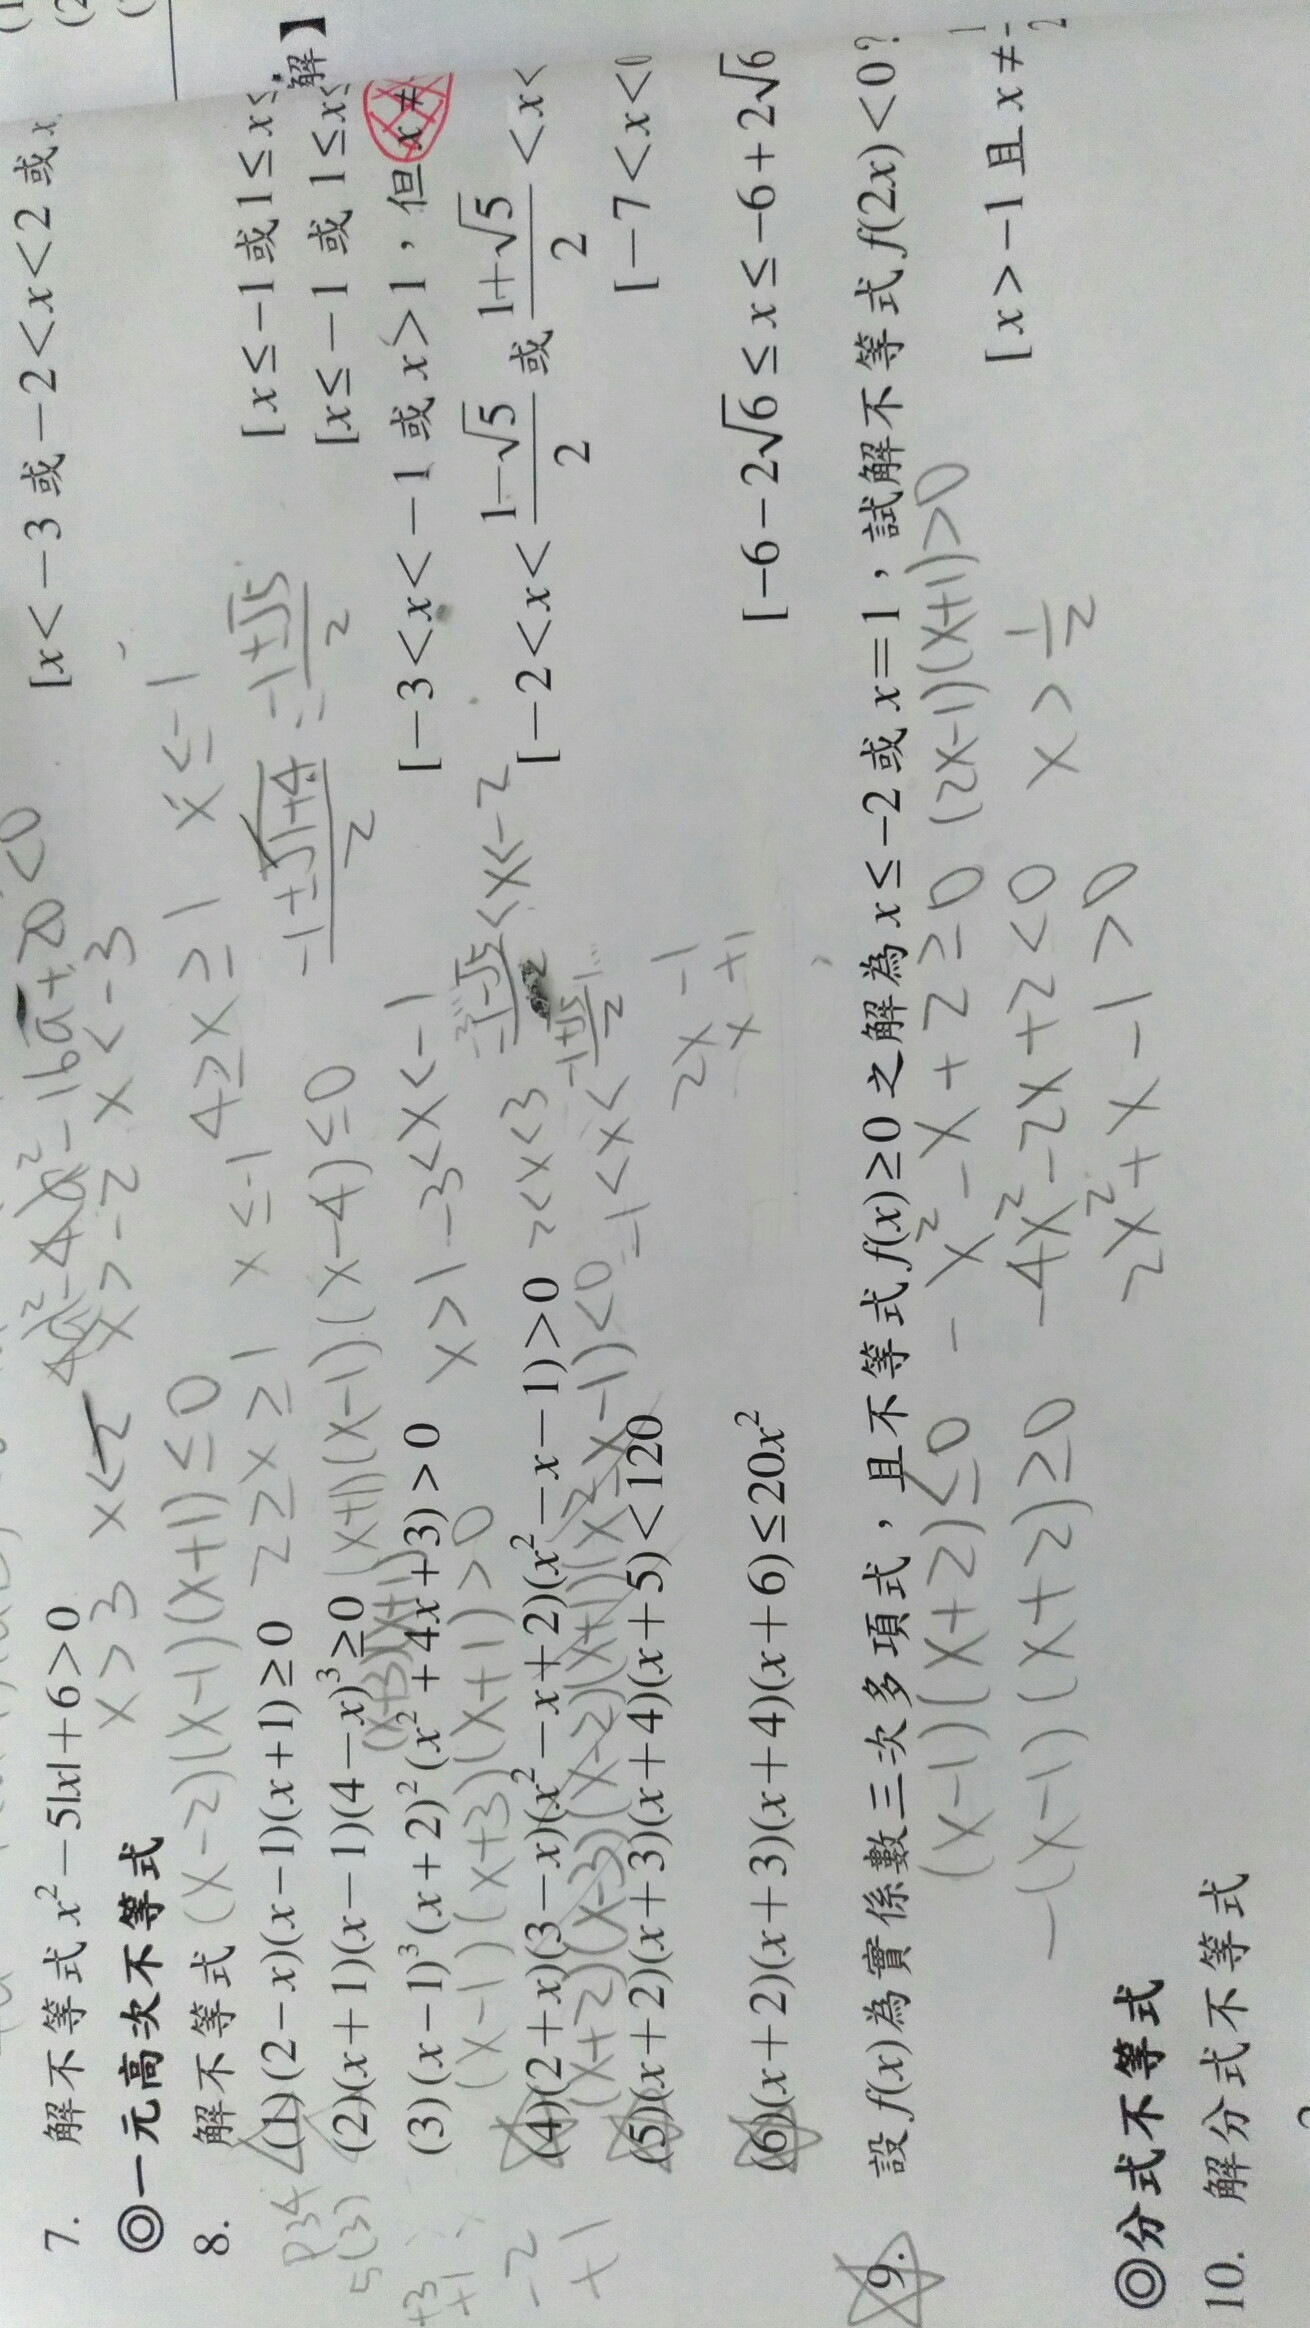 [x<-3 或 -2<x<2 或 x
7. 解不等式 x²-5|x|+6>0
x>3 x<2 x>-2 x<-3
◎一元高次不等式
8. 解不等式 (x-2)(x-1)(x+1)≤0
(1)(2-x)(x-1)(x+1)≥0 2≥x≥1 x≤-1 [x≤-1或1≤x≤
(2)(x+1)(x-1)(4-x)³≥0 (x+1)(x-1)(x-4)≤0 4≥x≥1 x≤-1 [x≤-1 或 1≤x≤
解】
(3)(x-1)³(x+2)²(x²+4x+3)>0 x>1 -3<x<-1 [-3<x<-1 或 x>1,但 x≠
(x+3)(x+1)
(x-1)(x+3)(x+1)>0
(4)(2+x)(3-x)(x²-x+2)(x²-x-1)>0 [-2<x<(1-√5)/2 或 (1+√5)/2<x<
(5)(x+2)(x+3)(x+4)(x+5)<120 [-7<x<0
2x -1
x +1
(6)(x+2)(x+3)(x+4)(x+6)≤20x² [-6-2√6≤x≤-6+2√6
9. 設 f(x)為實係數三次多項式,且不等式 f(x)≥0 之解為 x≤-2 或 x=1,試解不等式 f(2x)<0?
(x-1)(x+2)≤0 -x²-x+2≥0 (2x-1)(x+1)>0
-(x-1)(x+2)≥0 -4x²-2x+2<0 x>1/2
2x²+x-1>0
[x>-1且x≠1/2
◎分式不等式
10. 解分式不等式